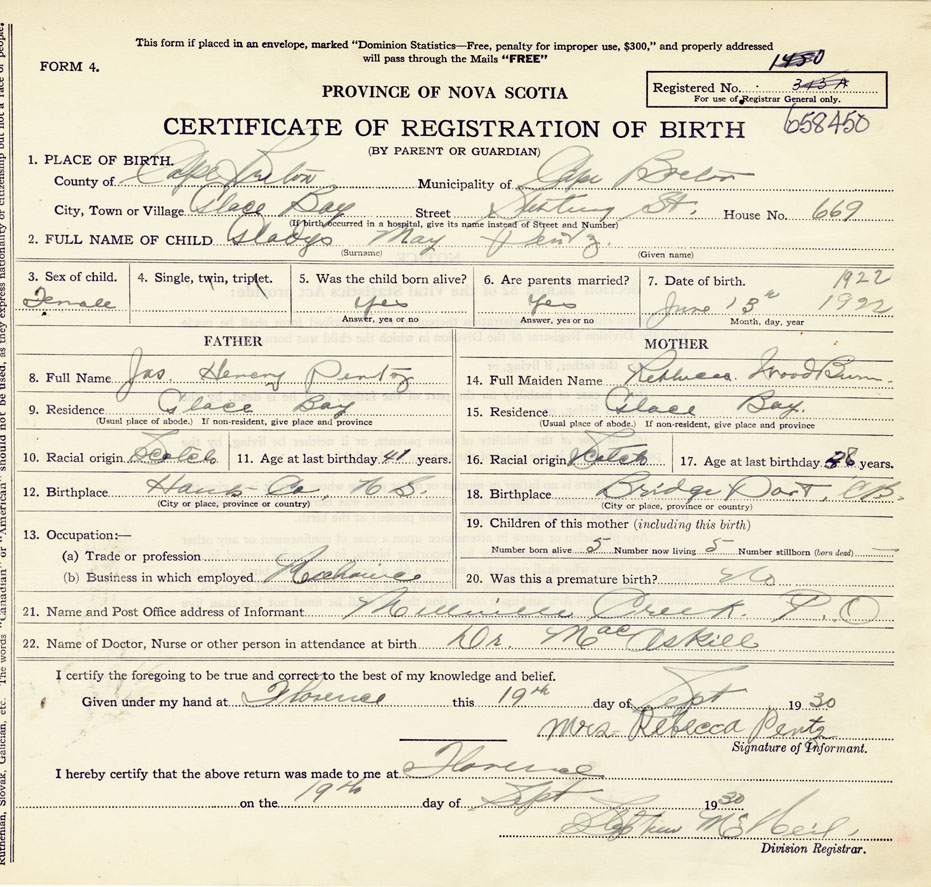 This form if placed in an envelope, marked "Dominion Statistics—Free, penalty for improper use, $300," and properly addressed
will pass through the Mails "FREE"
FORM 4.
1450
Registered No. 345 A
For use of Registrar General only.
PROVINCE OF NOVA SCOTIA
CERTIFICATE OF REGISTRATION OF BIRTH
658450
(BY PARENT OR GUARDIAN)
1. PLACE OF BIRTH.
County of Cape Breton Municipality of Cape Breton
City, Town or Village Glace Bay Street St. House No. 669
(If birth occurred in a hospital, give its name instead of Street and Number)
2. FULL NAME OF CHILD Gladys May Pentz
(Surname) (Given name)
3. Sex of child. 4. Single, twin, triplet. 5. Was the child born alive? 6. Are parents married? 7. Date of birth. 1922
Female Yes Yes June 13th 1922
Answer, yes or no Answer, yes or no Month, day, year
FATHER MOTHER
8. Full Name Jas Henery Pentz
14. Full Maiden Name Rebbecca WoodBurn
9. Residence Glace Bay
15. Residence Glace Bay.
(Usual place of abode.) If non-resident, give place and province
(Usual place of abode.) If non-resident, give place and province
10. Racial origin Scotch 11. Age at last birthday 41 years.
16. Racial origin Scotch 17. Age at last birthday 28 years.
12. Birthplace Hans Co, N S.
18. Birthplace Bridge Port, C B.
(City or place, province or country)
(City or place, province or country)
13. Occupation:—
19. Children of this mother (including this birth)
(a) Trade or profession
Number born alive 5 Number now living 5 Number stillborn (born dead) —
(b) Business in which employed
20. Was this a premature birth? No
21. Name and Post Office address of Informant. Millville Creek. P. O
22. Name of Doctor, Nurse or other person in attendance at birth Dr. MacAskill
I certify the foregoing to be true and correct to the best of my knowledge and belief.
Given under my hand at Florence this 19th day of Sept 1930
Mrs. Rebecca Pentz
Signature of Informant.
I hereby certify that the above return was made to me at Florence
on the 19th day of Sept 1930
Stephen McNeil.
Division Registrar.